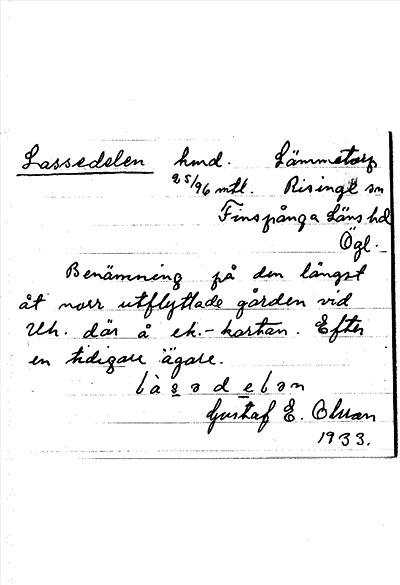 Lassedelen hmd. Lämmetorp
25/96 mtl. Risinge sn
Finspånga Läns hd
Ögl.
Benämning på den längst
åt norr utflyttade gården vid
Uh. där å ek.-kartan. Efter
en tidigare ägare.
Gustaf E. Olsson
1933.